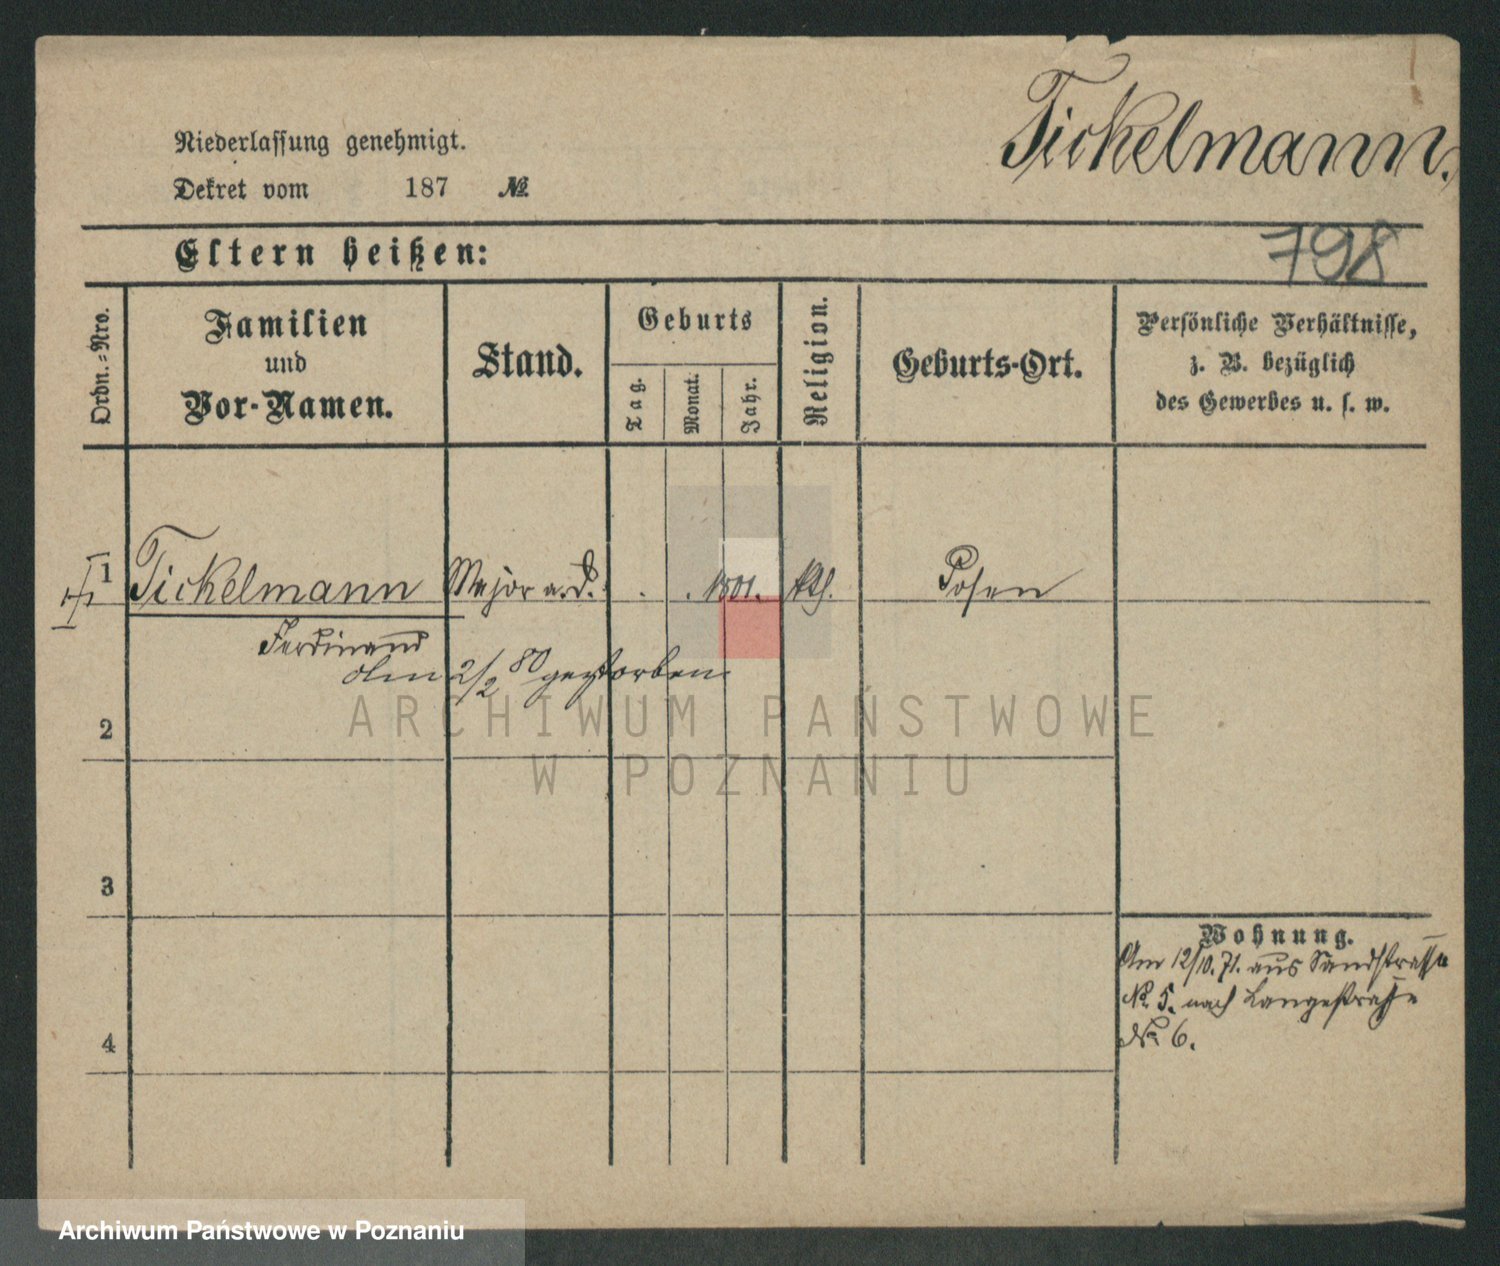 Tickelmann.
Niederlassung genehmigt.
Dekret vom 187 №
798
Eltern heißen:
Ordn.-Nro.
Familien
und
Vor-Namen.
Stand.
Geburts
Tag.
Monat.
Jahr.
Religion.
Geburts-Ort.
Persönliche Verhältnisse,
z. B. bezüglich
des Gewerbes u. s. w.
1 Tickelmann Major a. D. . . 1801. kth. Posen
Ferdinand
Am 2/2 80 gestorben
2
ARCHIWUM PAŃSTWOWE
W POZNANIU
3
Wohnung.
Am 12/10. 71. aus Sandstrasse
№ 5. nach Langestrasse
№ 6.
4
Archiwum Państwowe w Poznaniu